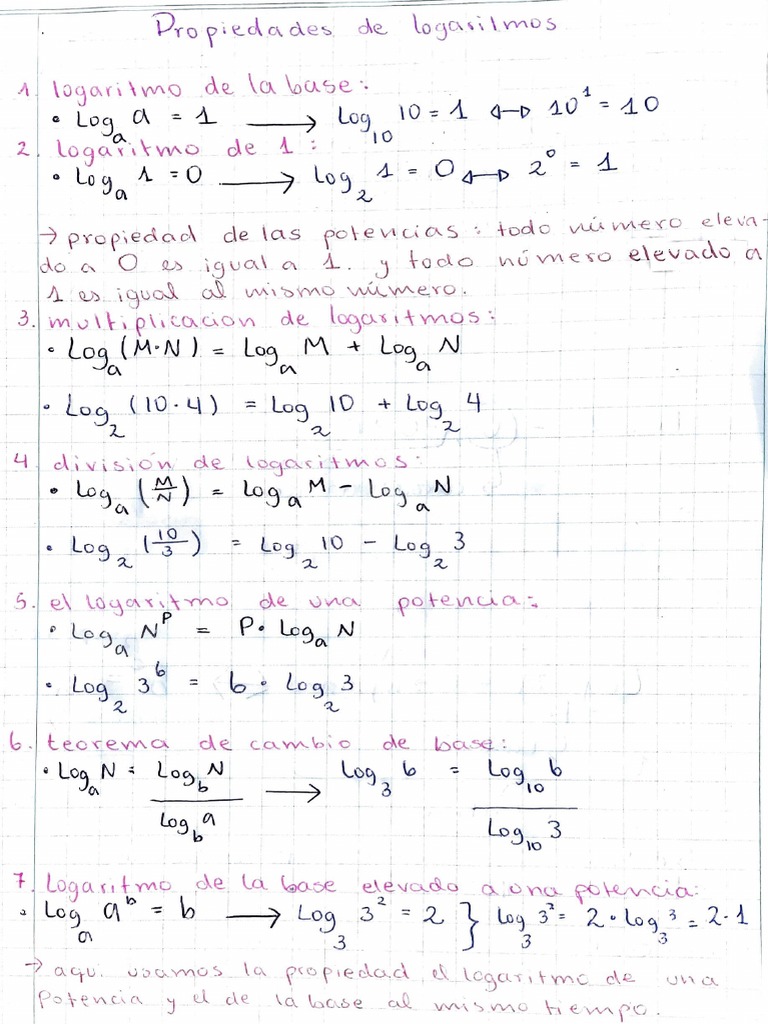 Propiedades de logaritmos
1. logaritmo de la base:
• Log_a a = 1 ⟶ Log_10 10 = 1 ↔ 10^1 = 10
2. logaritmo de 1:
• Log_a 1 = 0 ⟶ Log_2 1 = 0 ↔ 2^0 = 1
→ propiedad de las potencias: todo número eleva-
do a 0 es igual a 1. y todo número elevado a
1 es igual al mismo número.
3. multiplicacion de logaritmos:
• Log_a (M·N) = Log_a M + Log_a N
• Log_2 (10·4) = Log_2 10 + Log_2 4
4. división de logaritmos:
• Log_a (M/N) = Log_a M − Log_a N
• Log_2 (10/3) = Log_2 10 − Log_2 3
5. el logaritmo de una potencia:
• Log_a N^P = P· Log_a N
• Log_2 3^6 = 6 · Log_2 3
6. teorema de cambio de base:
• Log_a N = Log_b N / Log_b a ⟶ Log_3 6 = Log_10 6 / Log_10 3
7. Logaritmo de la base elevado a una potencia:
• Log_a a^b = b ⟶ Log_3 3^2 = 2 } Log_3 3^2 = 2 · Log_3 3 = 2·1
→ aqui usamos la propiedad el logaritmo de una
Potencia y el de la base al mismo tiempo.